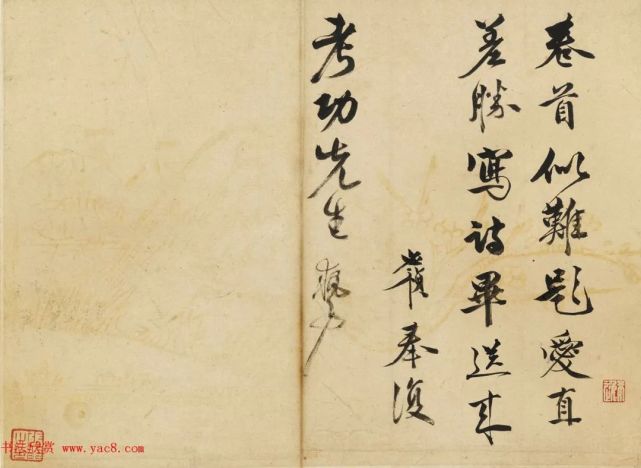 卷首似難題愛直
差勝寫詩畢送来
奉復
考功先生
书法欣赏 www.yac8.com